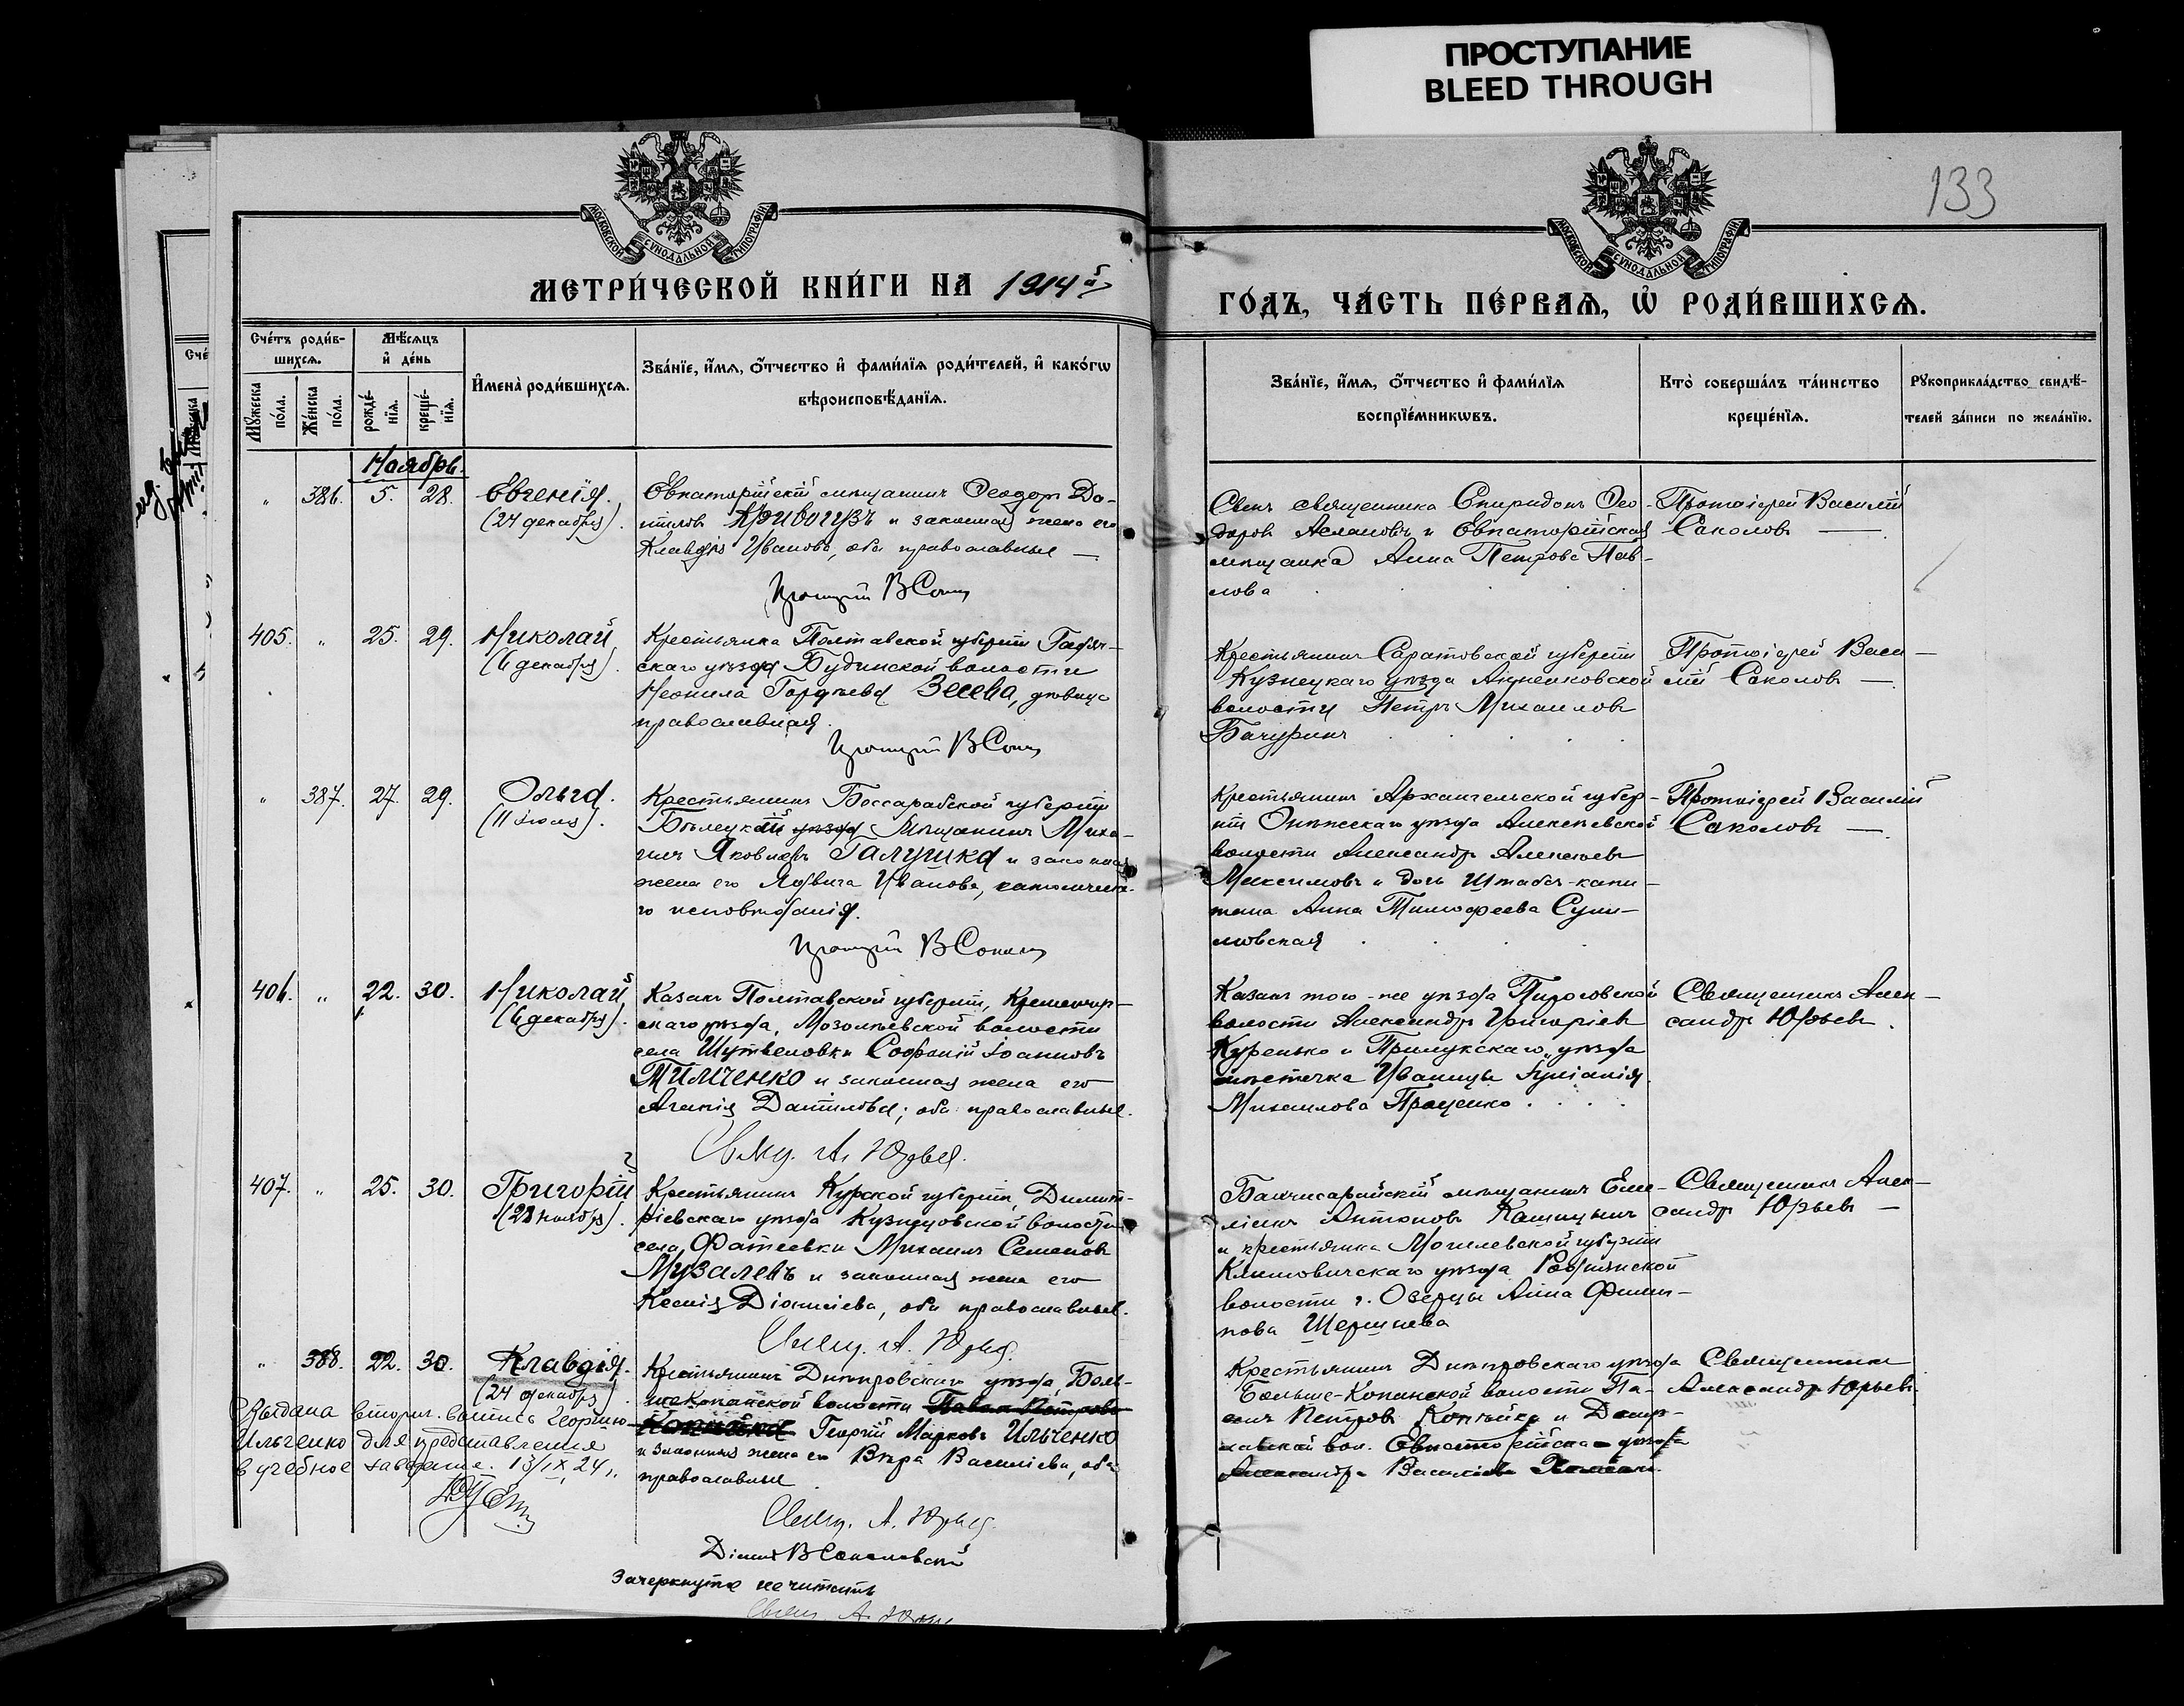 ПРОСТУПАНИЕ
BLEED THROUGH
133
МОСКОВСКОЙ СУНОДАЛЬНОЙ ТИПОГРАФІИ
МОСКОВСКОЙ СУНОДАЛЬНОЙ ТИПОГРАФІИ
МЕТРИ́ЧЕСКОЙ КНИ́ГИ НА 1914й
ГО́ДЪ, ЧА́СТЬ ПЕ́РВАѦ, Ѡ҆ РОДИ́ВШИХСѦ.
Сче́тъ роди́в-
шихсѧ.
Мѣ́сѧцъ
и҆ де́нь
Мꙋ́жеска по́ла.
Же́нска по́ла.
рожде́-
нїѧ.
креще́-
нїѧ.
И҆мена̀ роди́вшихсѧ.
Зва́нїе, и҆́мѧ, ѻ҆́тчество и҆ фами́лїѧ роди́телей, и҆ како́гѡ
вѣроисповѣ́данїѧ.
Зва́нїе, и҆́мѧ, ѻ҆́тчество и҆ фами́лїѧ
воспрїе́мникѡвъ.
Кто̀ соверша́лъ та́инство
креще́нїѧ.
Рꙋкоприкла́дство свидѣ́-
телей за́писи по жела́нїю.
Ноябрь.
" 386. 5. 28. Евгенія.
(24 декабря).
Евпаторійскій мѣщанинъ Ѳеодоръ Да-
ниловъ Кривогузъ и законная жена его
Клавдія Иванова, оба православные —
Сынъ священника Спиридонъ Ѳео-
доровъ Аслановъ и Евпаторійская
мѣщанка Анна Петрова Пав-
лова
Протоіерей Василій
Соколовъ —
405. " 25. 29. Николай
(6 декабря).
Крестьянка Полтавской губерніи Гадяч-
скаго уѣзда Будинской волости
Неонила Гордѣева Зеева, дѣвица
православная.
Крестьянинъ Саратовской губерніи
Кузнецкаго уѣзда Анненковской
волости Петръ Михаиловъ
Бачуринъ
Протоіерей Васи-
лій Соколовъ —
" 387. 27. 29. Ольга.
(11 іюля).
Крестьянинъ Бессарабской губерніи
Бѣлецкій уѣзда мѣщанинъ Миха-
илъ Яковлевъ Галушка и законная
жена его Ядвига Иванова, католическа-
го исповѣданія.
Крестьянинъ Архангельской губер-
ніи Онежскаго уѣзда Алексѣевской
волости Александръ Алексѣевъ
Максимовъ и дочь Штабсъ-капи-
тана Анна Тимофеева Сули-
мовская
Протоіерей Василій
Соколовъ —
406. " 22. 30. Николай
(6 декабря).
Казакъ Полтавской губерніи, Кременчуг-
скаго уѣзда, Мозолѣевской волости
села Шушвеловки Софоній Іоанновъ
Мильченко и законная жена его
Агапія Даніилова; оба православные.
Свящ. А. Юрьев.
Казакъ того-же уѣзда Пироговской
волости Александръ Григоріевъ
Куренько и Прилукскаго уѣзда
мѣстечка Иваницы Іуліанія
Михаилова Проценко
Священникъ Алек-
сандръ Юрьевъ.
407. " 25. 30. Григорій
(28 ноября).
Крестьянинъ Курской губерніи, Димит-
ріевскаго уѣзда Кузнецовской волости
села Фатеевки Михаилъ Семеновъ
Музалевъ и законная жена его
Ксенія Діонисіева, оба православные.
Свящ. А. Юрьев.
Бахчисарайскій мѣщанинъ Еми-
ліанъ Антоновъ Кашицынъ
и крестьянка Могилевской губерніи
Климовичскаго уѣзда Роднянской
волости д. Озерцы Анна Филип-
пова Шершнева
Священникъ Алек-
сандръ Юрьевъ —
" 388. 22. 30. Клавдія.
(24 декабря).
Крестьянинъ Днѣпровскаго уѣзда, Боль-
шекопанской волости Павелъ Петровъ
Копѣйка Георгій Марковъ Ильченко
и законная жена его Вѣра Василіева, оба
православные
Свящ. А. Юрьев.
Крестьянинъ Днѣпровскаго уѣзда
Больше-Копанской волости Па-
велъ Петровъ Копѣйка и Донуз-
лавской вол. Евпаторійскаго уѣзда
Александра Василіева
Священникъ
Александръ Юрьевъ.
Выдана вторич. выпись Георгію
Ильченко для представленія
в учебное заведеніе. 13/IX 24 г.
Зачеркнутое не читать